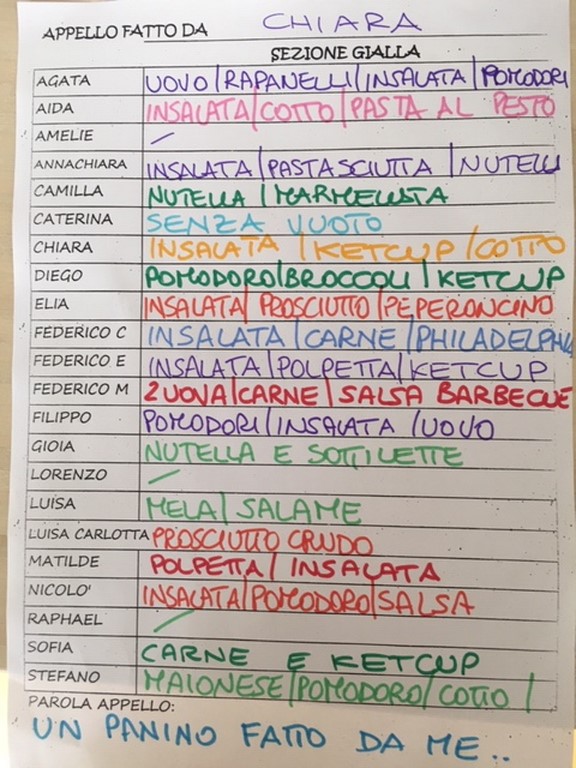 APPELLO FATTO DA CHIARA
SEZIONE GIALLA
AGATA UOVO/RAPANELLI/INSALATA/POMODORI
AIDA INSALATA/COTTO/PASTA AL PESTO
AMELIE /
ANNACHIARA INSALATA/PASTASCIUTTA/NUTELL
CAMILLA NUTELLA/MARMELLATA
CATERINA SENZA VUOTO
CHIARA INSALATA/KETCUP/COTTO
DIEGO POMODORO/BROCCOLI/KETCUP
ELIA INSALATA/PROSCIUTTO/PEPERONCINO
FEDERICO C INSALATA/CARNE/PHILADELPHIA
FEDERICO E INSALATA/POLPETTA/KETCUP
FEDERICO M 2 UOVA/CARNE/SALSA BARBECUE
FILIPPO POMODORI/INSALATA/UOVO
GIOIA NUTELLA E SOTTILETTE
LORENZO /
LUISA MELA/SALAME
LUISA CARLOTTA PROSCIUTTO CRUDO
MATILDE POLPETTA/INSALATA
NICOLO' INSALATA/POMODORO/SALSA
RAPHAEL /
SOFIA CARNE E KETCUP
STEFANO MAIONESE/POMODORO/COTTO/
PAROLA APPELLO:
UN PANINO FATTO DA ME..